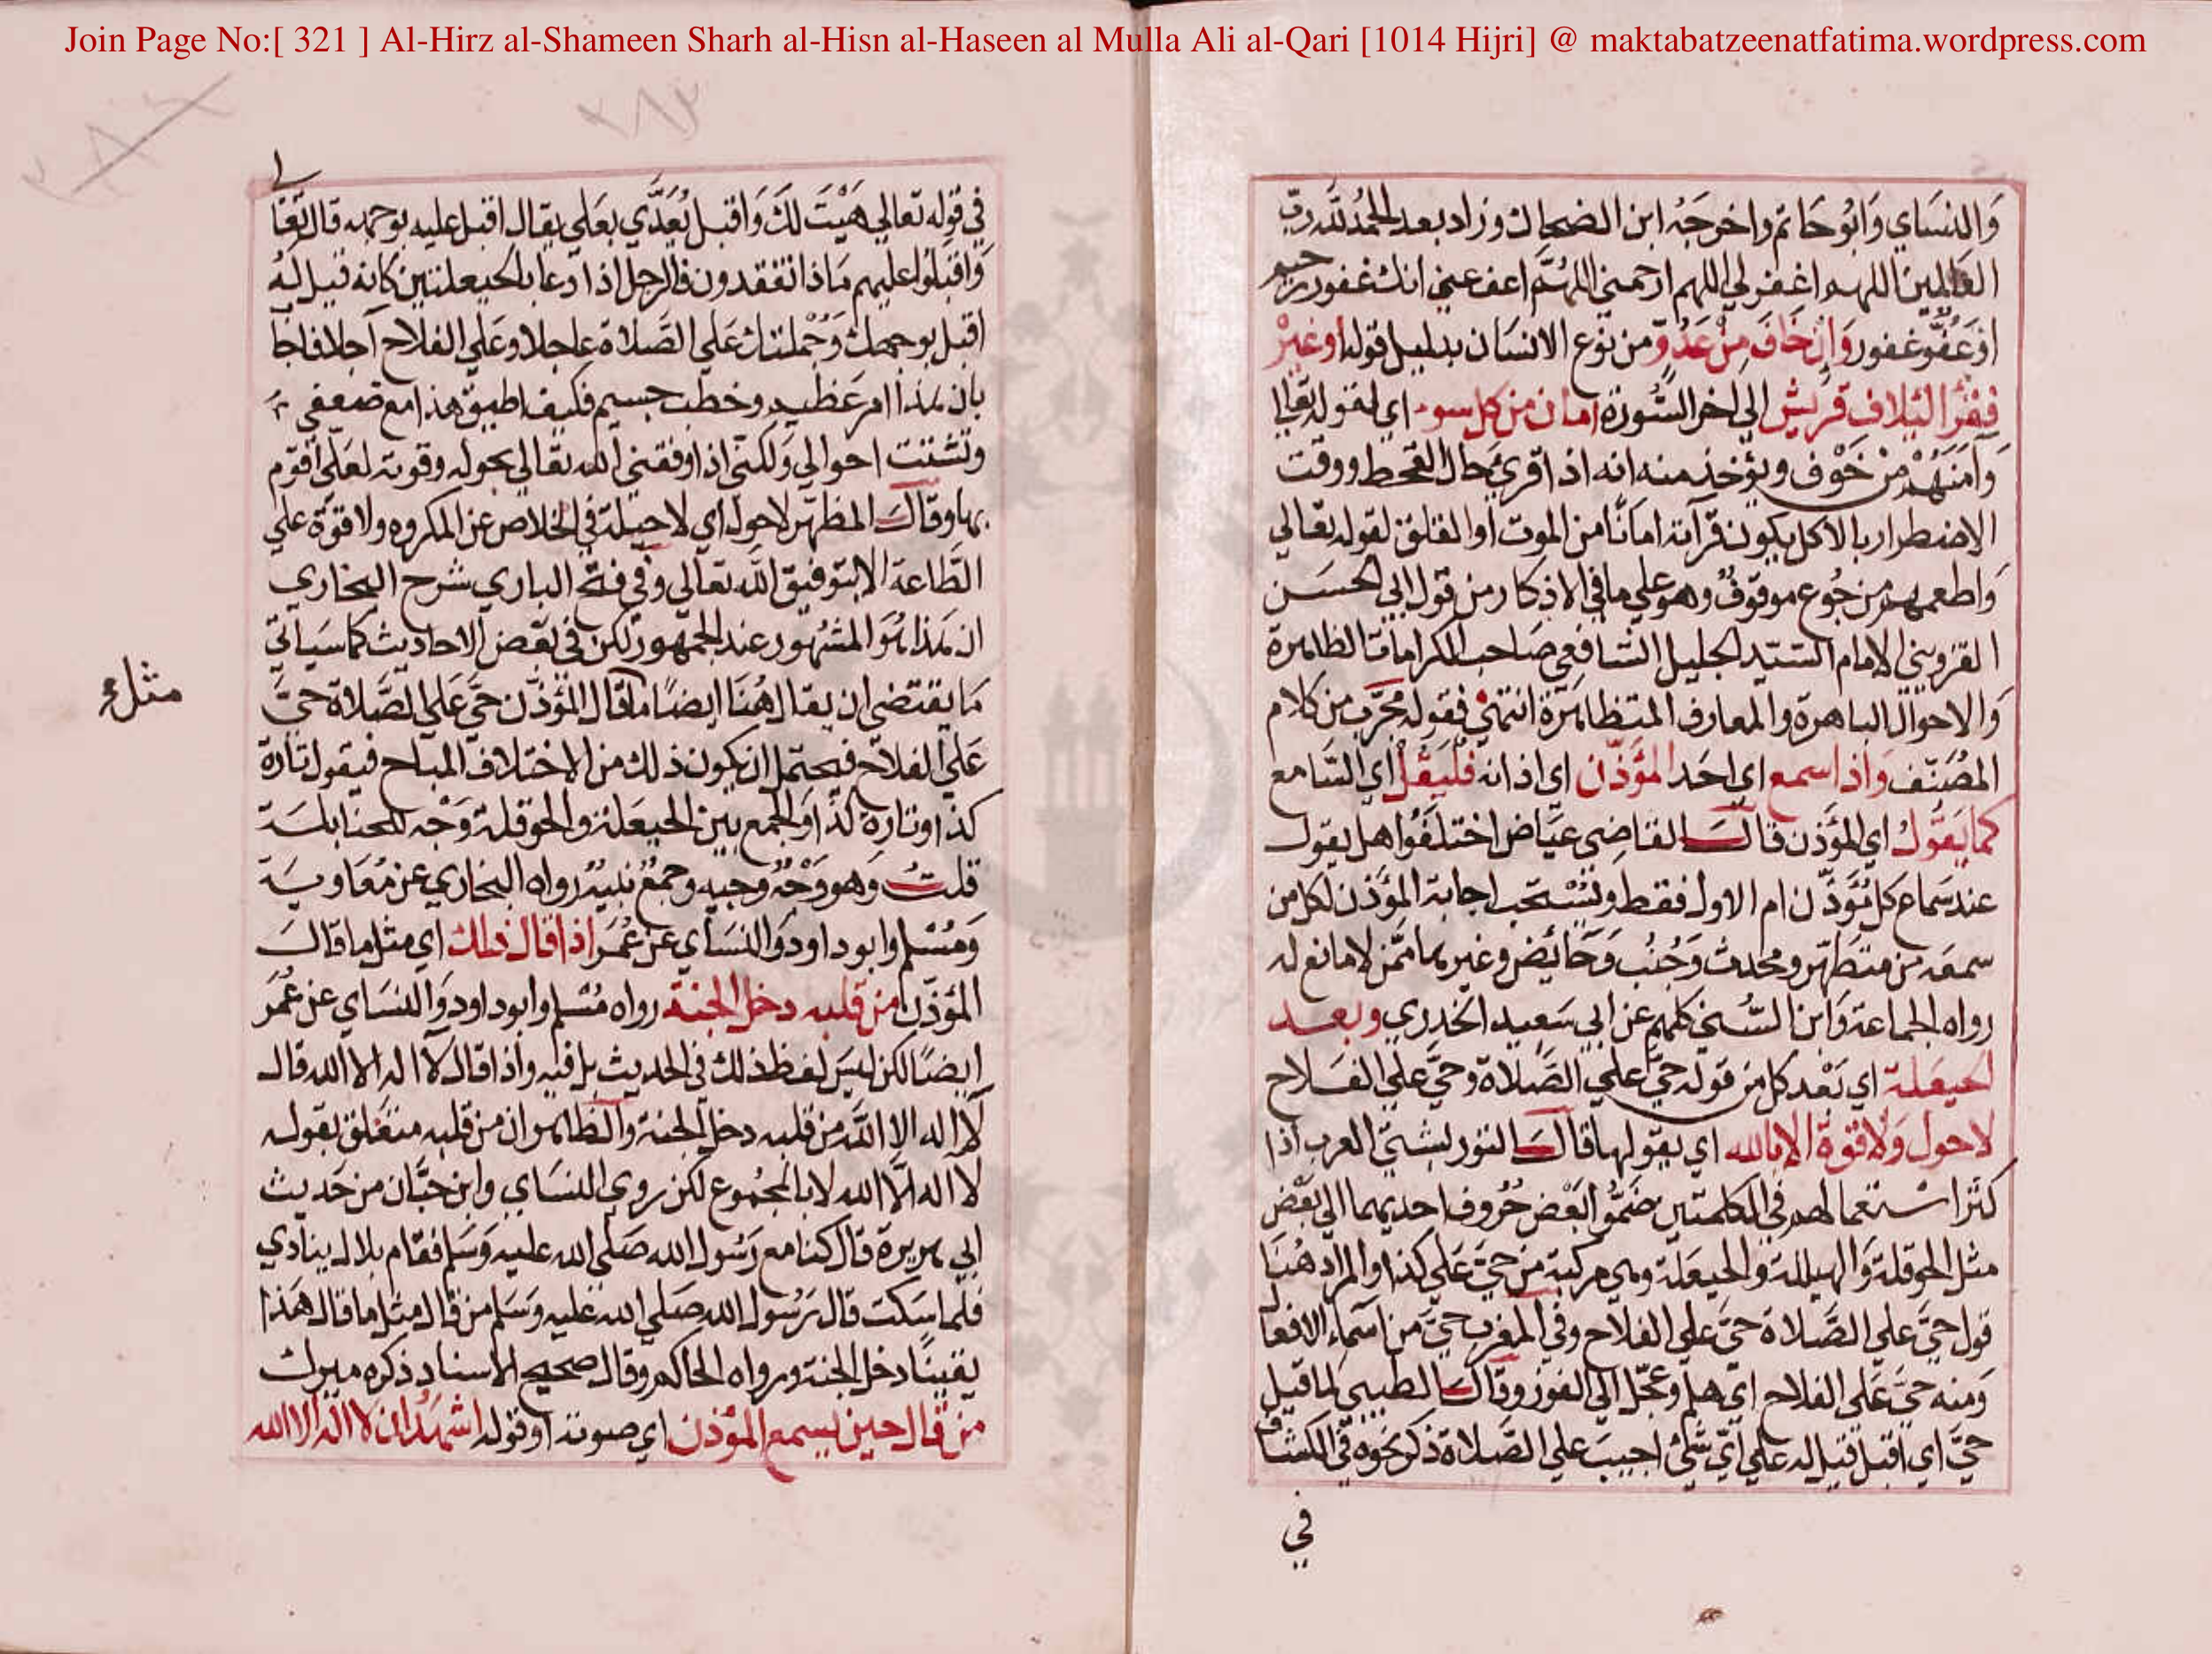 Join Page No:[ 321 ] Al-Hirz al-Shameen Sharh al-Hisn al-Haseen al Mulla Ali al-Qari [1014 Hijri] @ maktabatzeenatfatima.wordpress.com
وَالنسَاي وَابُو حَاتم واخرجَهُ ابن الضحاك وزاد بعد الحمدُ لله ربّ
العَالمين اللهم اغفر لي اللهم ارحمني اللهُمَّ اعف عني انك غفور رحيم
او عَفُوّ غفور وَاِن خَافَ مِنْ عَدُوّ من نوع الانسَان بدليل قوله او غيرْ
فيَقرأ لئيلاف قريش الي اخر السُّورة امان من كل سوء اي لقوله تعالي
وَآمنَهُمْ من خَوْف ويؤخذ منه انه اذا قرئ حال القحط ووقت
الاضطرار بالاكل يكون قرآته امانًا من الموت او القلق لقوله تعالي
وَاطعمهم من جُوع موقوفٌ وهو علي ما في الاذكار من قول ابي الحسَن
القزويني الامام السَّيّد الجليل الشافعي صَاحب الكرامات الظاهرة
وَالاحوال الباهرة والمعارف المتظاهرة انتهي فقوله مجرّب من كلام
المصَنّف وَاذا سمع اي احَد المؤذّن اي اذانه فليَقل اي السَّامع
كما يَقُول اي المؤذن قال القاضي عيَاض اختلفُوا هل يقول
عند سَماع كل مُؤذّن ام الاول فقط ويُسْتحَب اجابة المؤذن لكل من
سمعَه من متطَهّر ومحدث وَجُنُب وَحَائض وغيرهما ممّن لا مانع له
رواه الجماعة وَابن السُّني كلهم عن ابي سَعيد الخدري وبعد
الحيعَلة اي بَعْد كل من قوله حيّ علي الصَّلاة وحيَّ علي الفلاح
لا حول وَلا قوة الا بالله اي يقولها قال التوربشتي العرب اذا
كثر استعمالهم في الكلمتين ضَمُّوا بَعْض حُروف احديهما الي بَعْض
مثل الحوقلة وَالهيللة والحيعَلة وهي مركبة من حيَّ عَلي كذا والمراد هُنا
قول حيَّ علي الصَّلاة حيَّ علي الفلاح وفي المغرب حيَّ من اسمَاء الافعا
وَمنه حيَّ عَلي الفلاح اي هلم وعجّل الي الفوز وقال الطيبي لما قيل
حيَّ اي اقبل قيل له علي ايّ شئ اجيبَ علي الصَّلاة ذكر نحوه في الكشاف
في
في قوله تعالي هَيْتَ لَكَ وَاقبل يُعَدّي بعَلي يقال اقبل عليه بوجهه قال تعا
وَاقبلوا عليهم مَاذا تفقدون فالرجل اذا دعا بالحيعلتين كانه قيل لهُ
اقبل بوجهك وَجُملتك عَلي الصَّلاة عاجلا وعَلي الفلاح آجلا فاجا
بان هذا امر عَظيم وخطب جسيم فكيف اطيق هذا مع ضعفي
وتشتت احوالي وَلكنّي اذا وفقني الله تعالي بحوله وقوته لعَلي اقوم
بها وقال المظهر لا حول اي لا حيلة في الخلاص عن المكروه ولا قوّة علي
الطاعة الا بتوفيق الله تعالي وفي فتح الباري شرح البخاري
ان هذا هُوَ المشهُور عند الجمهور لكن في بَعْض الاحاديث كما سَياتي
مَا يقتضي ان يقال هُنَا ايضًا ما قال المؤذّن حيَّ عَلي الصَّلاة حيَّ
مثل
عَلي الفلاح فيحتمل ان يكون ذلك من الاختلاف المباح فيقول تارة
كذا وتارة كذا وَالجمع بين الحيعَلة والحوقلة وَجْه للحنابلة
قلتُ وَهو وَجْهٌ وجيه وجمعٌ نبيهٌ رواه البخاري عن مُعَاوية
وَمُسْلم وابو داود وَالنسَاي عن عُمَر اذا قال ذلك اي مثل ما قال
المؤذّن من قلبه دخل الجنة رواه مُسْلم وابو داود وَالنسَاي عن عُمَر
ايضًا لكن ليسَ لفظ ذلك في الحديث بل فيه واذا قال لا اله الا الله قال
لا اله الا الله من قلبه دخل الجنة والظاهر ان من قلبه متعَلق بقوله
لا اله الّا الله لا بالمجمُوع لكن روي النسَاي وابن حبَّان من حَديث
ابي هريرة قال كنا مع رَسُول الله صَلي الله عليه وَسَلم فقام بلال ينادي
فلما سَكت قال رَسُول الله صَلي الله عليه وَسَلم من قال مثل ما قال هَذا
يقينًا دخل الجنة ورواه الحاكم وقال صحيح الاسناد ذكره ميرك
من قال حين يسمع المؤذن اي صوته او قوله اشهدُ ان لا اله الا الله